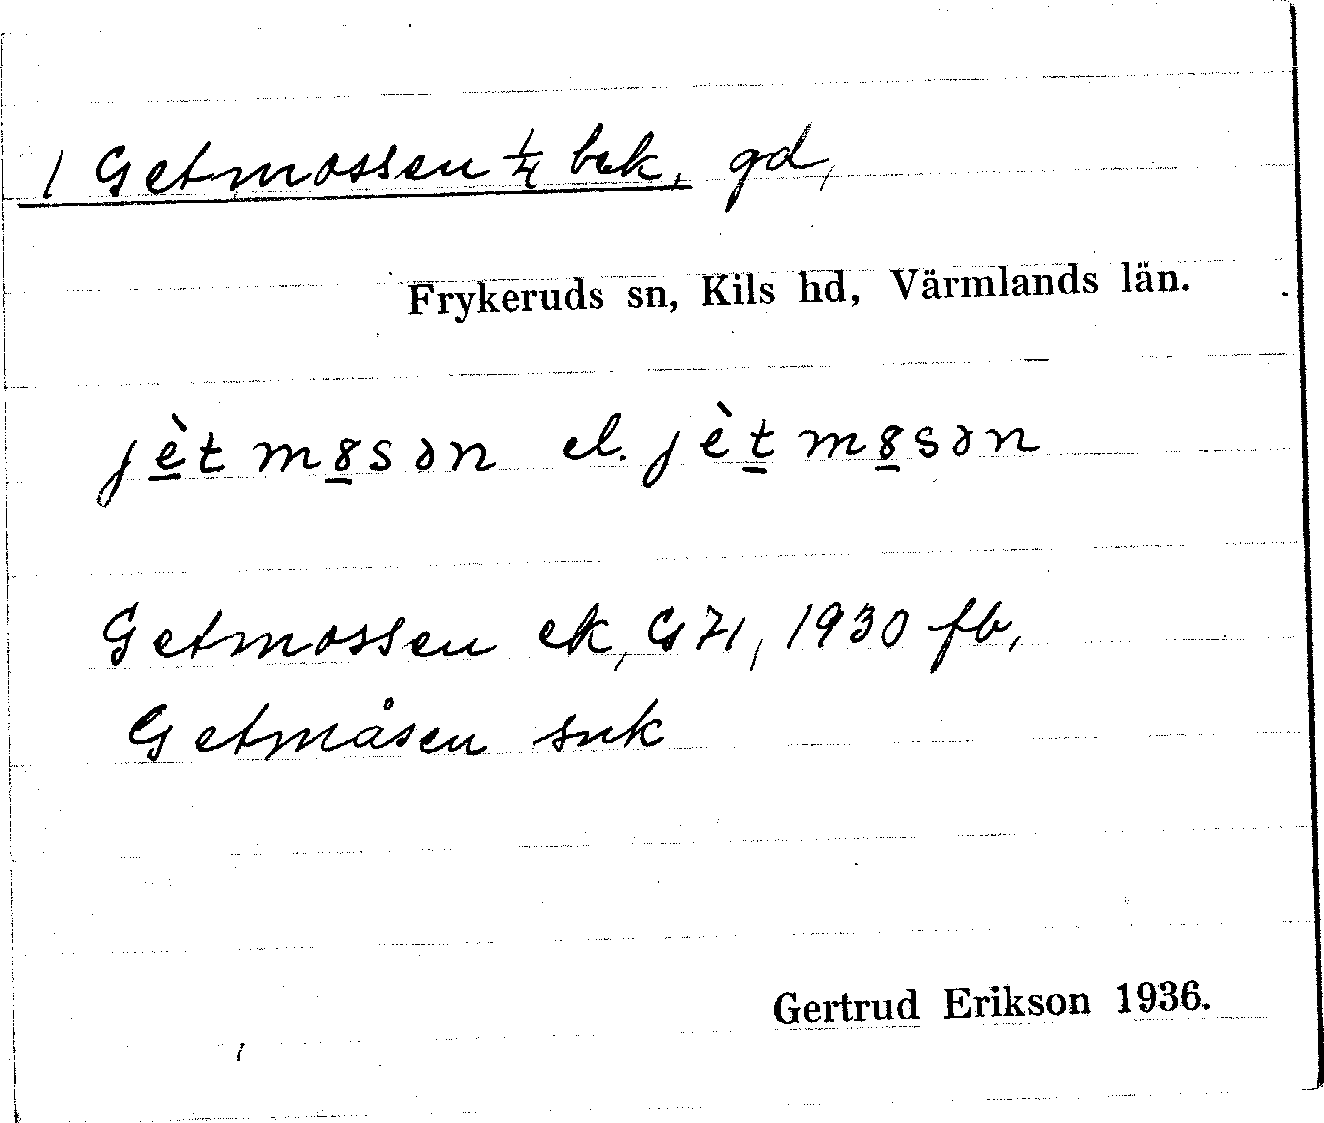 1 Getmossen ¼ bek, gd,
Frykeruds sn, Kils hd, Värmlands län.
jè̱t mȣ̱sən el. jèṯ mȣ̱sən
Getmossen ek, G71, 1930 fb,
Getmåsen snk
Gertrud Erikson 1936.